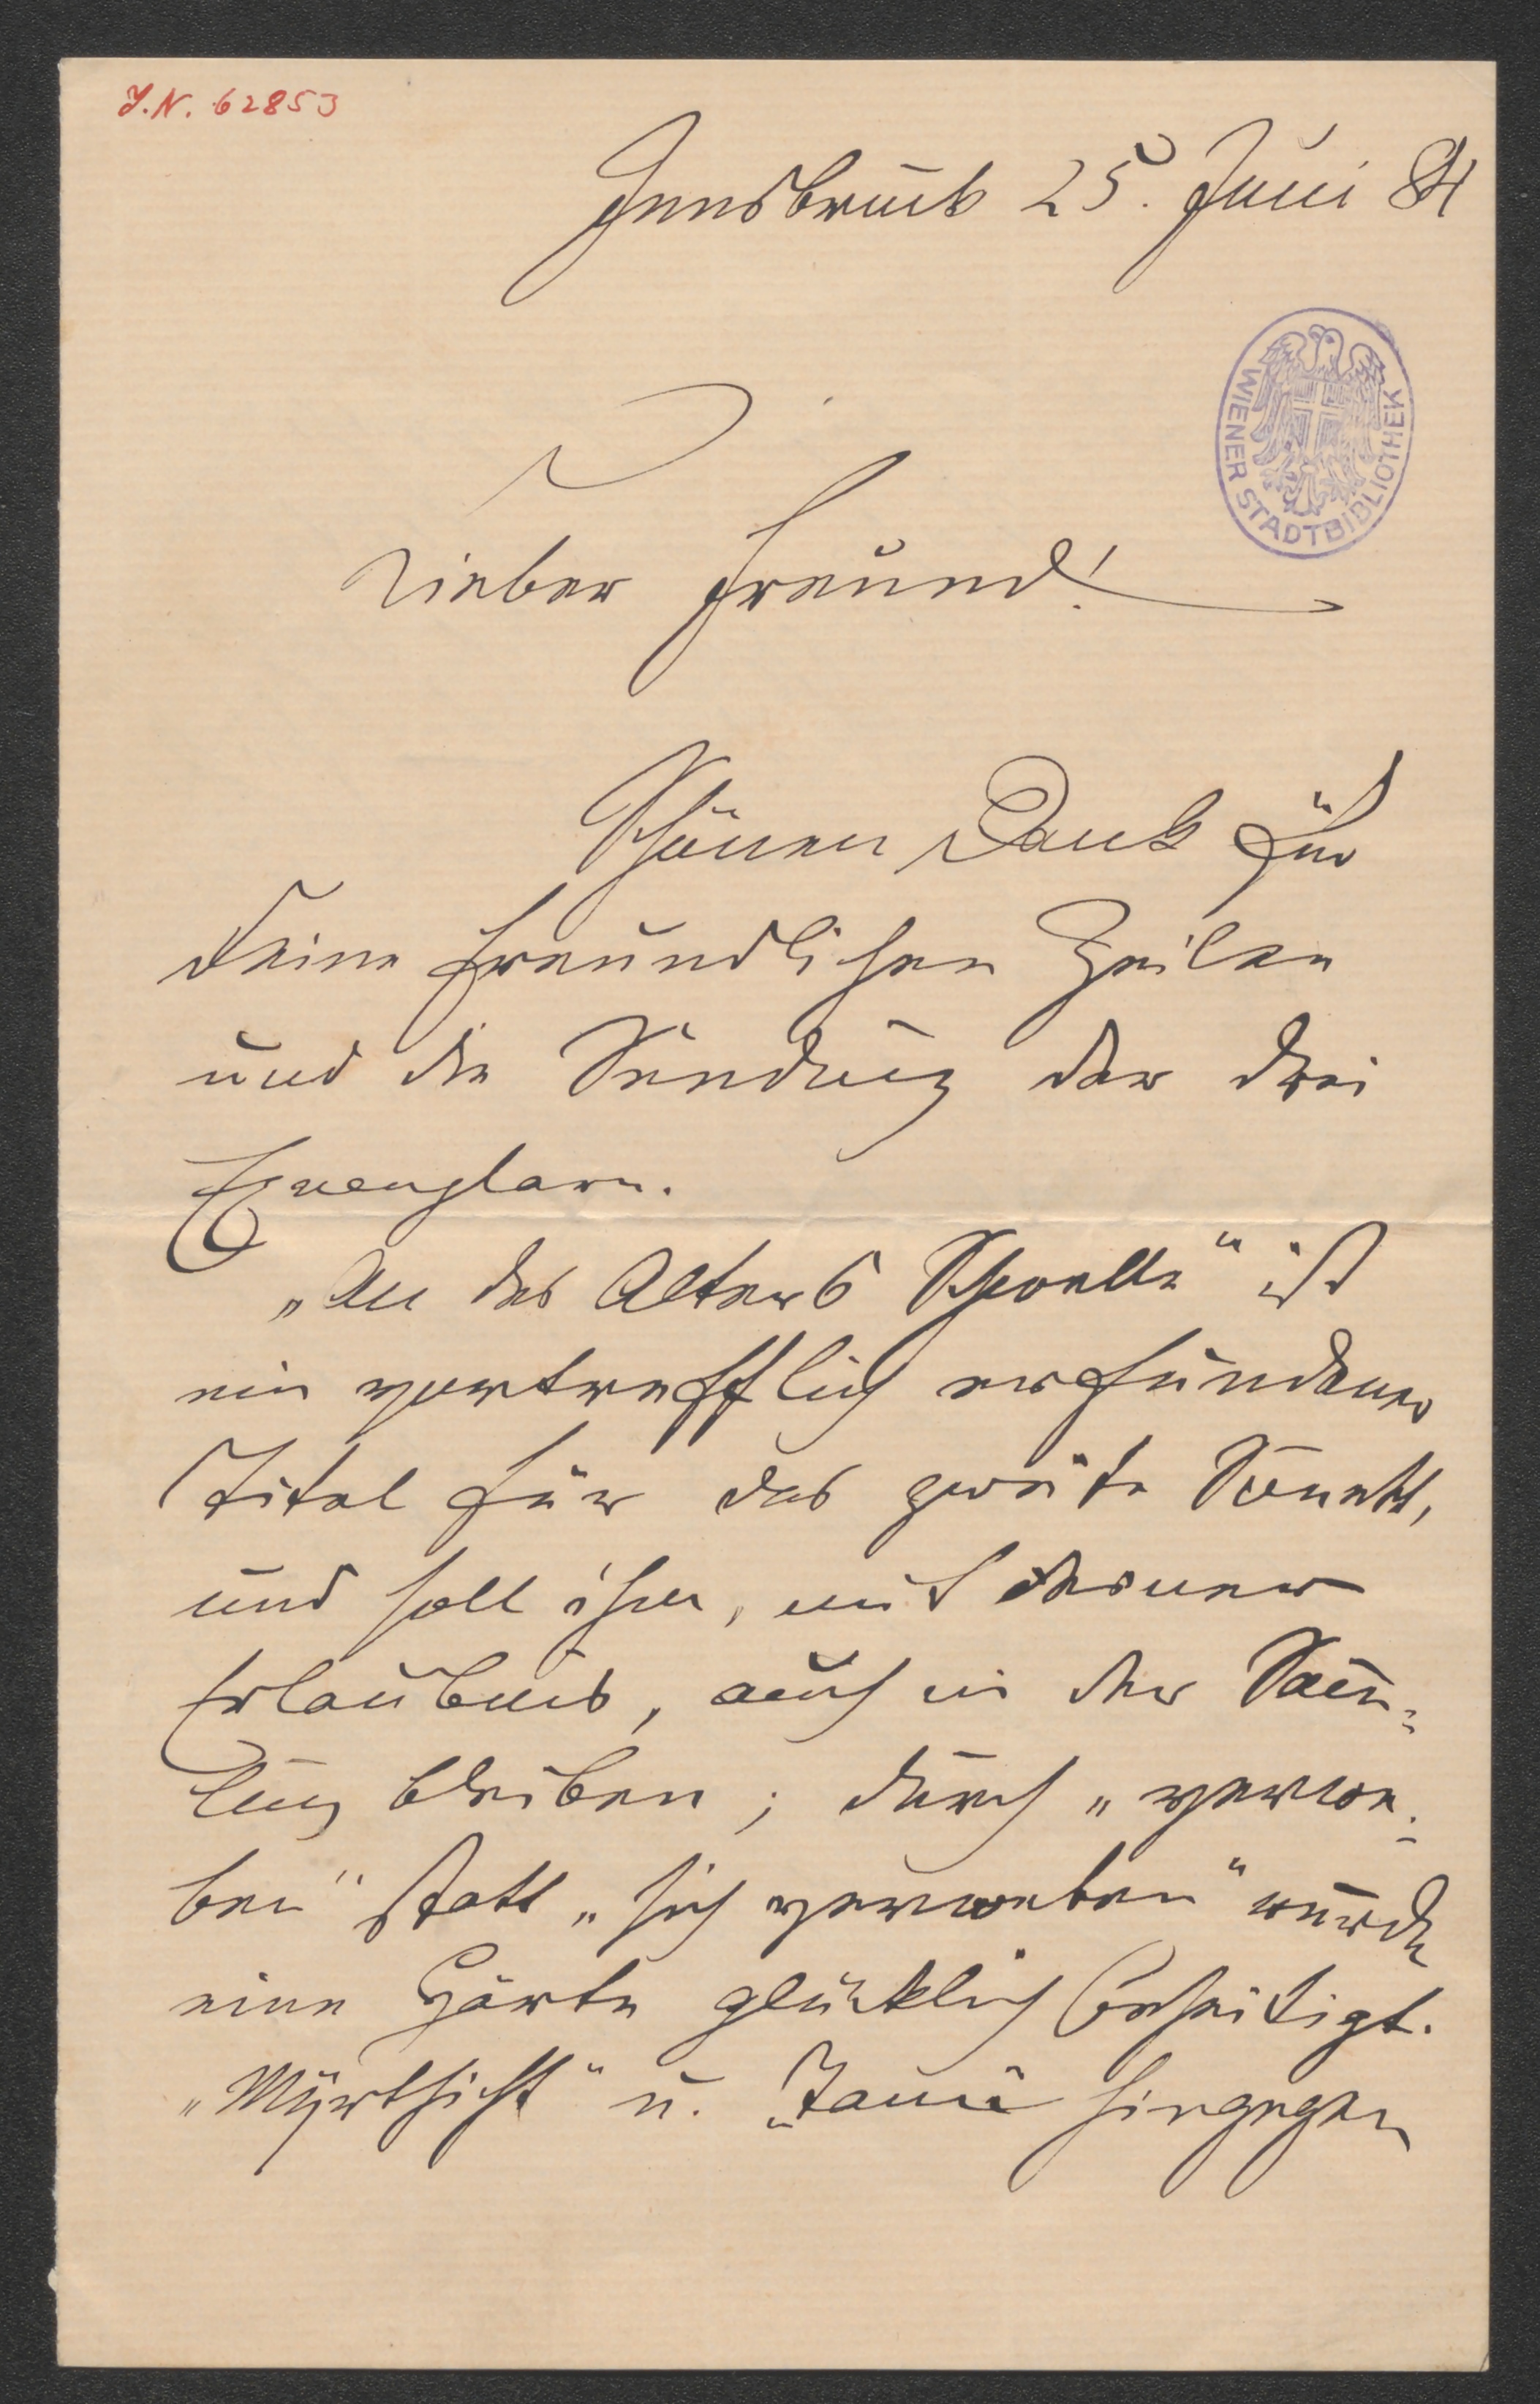 J.N. 62853
Innsbruck 25. Juni 84
WIENER STADTBIBLIOTHEK
Lieber Freund!
Schönen Dank für
deine freundlichen Zeilen
und die Sendung der drei
Exemplare.
„An des Alters Schwelle" ist
ein vortrefflich erfundener
Titel für das zweite Sonett,
und soll ihm, mit deiner
Erlaubnis, auch in der Sam̄-
lung bleiben; durch „verwe-
ben" statt „sich verweben" wurde
eine Härte glücklich beseitigt.
u. hingegen